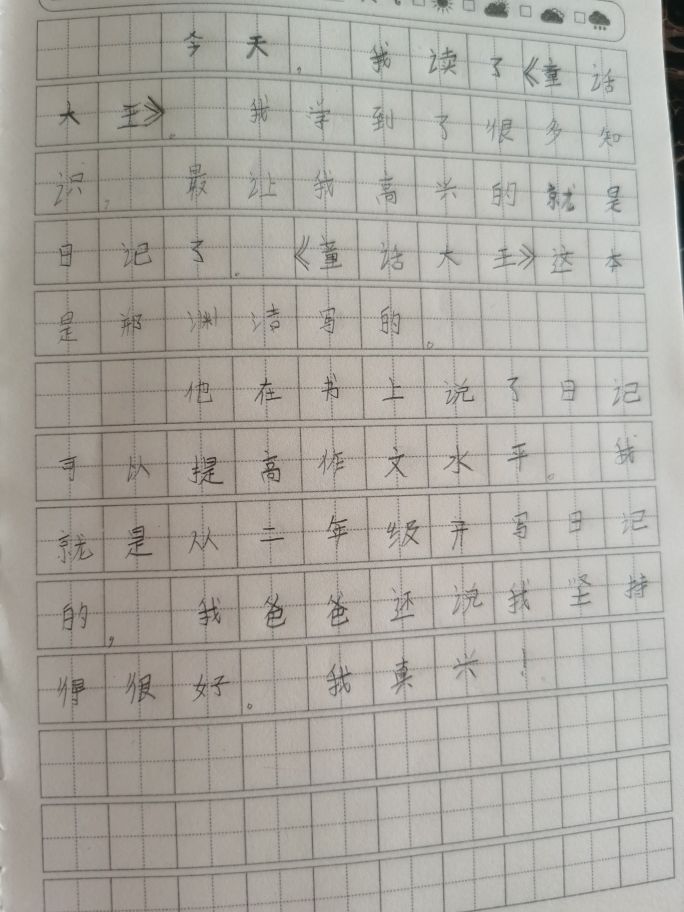 今天，我读了《童话
大王》。我学到了很多知
识，最让我高兴的就是
日记了。《童话大王》这本
是郑渊洁写的。
他在书上说了日记
可以提高作文水平。我
就是从二年级开写日记
的，我爸爸还说我坚持
得很好。我真兴！